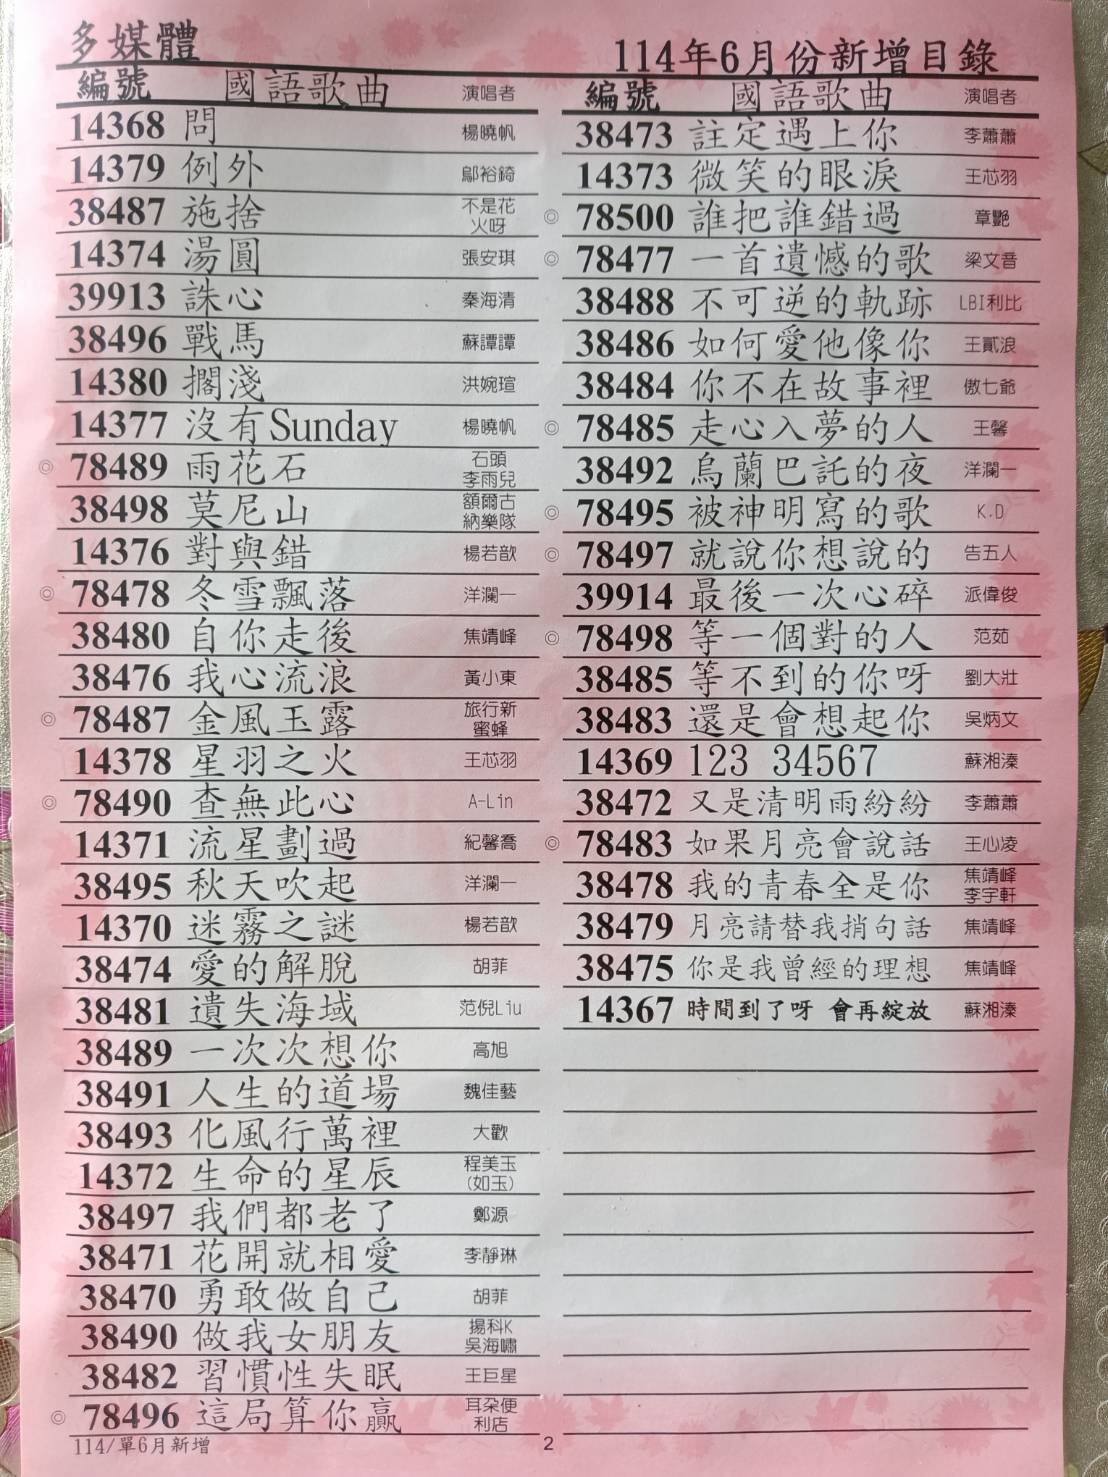 多媒體
114年6月份新增目錄
編號 國語歌曲 演唱者
14368 問 楊曉帆
14379 例外 鄔裕錡
38487 施捨 不是花火呀
14374 湯圓 張安琪
39913 誅心 秦海清
38496 戰馬 蘇譚譚
14380 擱淺 洪婉瑄
14377 沒有Sunday 楊曉帆
◎ 78489 雨花石 石頭 李雨兒
38498 莫尼山 額爾古納樂隊
14376 對與錯 楊若歆
◎ 78478 冬雪飄落 洋瀾一
38480 自你走後 焦靖峰
38476 我心流浪 黃小東
◎ 78487 金風玉露 旅行新蜜蜂
14378 星羽之火 王芯羽
◎ 78490 查無此心 A-Lin
14371 流星劃過 紀馨喬
38495 秋天吹起 洋瀾一
14370 迷霧之謎 楊若歆
38474 愛的解脫 胡菲
38481 遺失海域 范倪Liu
38489 一次次想你 高旭
38491 人生的道場 魏佳藝
38493 化風行萬裡 大歡
14372 生命的星辰 程美玉(如玉)
38497 我們都老了 鄭源
38471 花開就相愛 李靜琳
38470 勇敢做自己 胡菲
38490 做我女朋友 揚科K 吳海嘯
38482 習慣性失眠 王巨星
◎ 78496 這局算你贏 耳朵便利店
編號 國語歌曲 演唱者
38473 註定遇上你 李蕭蕭
14373 微笑的眼淚 王芯羽
◎ 78500 誰把誰錯過 章艷
◎ 78477 一首遺憾的歌 梁文音
38488 不可逆的軌跡 LBI利比
38486 如何愛他像你 王貳浪
38484 你不在故事裡 傲七爺
◎ 78485 走心入夢的人 王馨
38492 烏蘭巴託的夜 洋瀾一
◎ 78495 被神明寫的歌 K.D
◎ 78497 就說你想說的 告五人
39914 最後一次心碎 派偉俊
◎ 78498 等一個對的人 范茹
38485 等不到的你呀 劉大壯
38483 還是會想起你 吳炳文
14369 123 34567 蘇湘溱
38472 又是清明雨紛紛 李蕭蕭
◎ 78483 如果月亮會說話 王心凌
38478 我的青春全是你 焦靖峰 李宇軒
38479 月亮請替我捎句話 焦靖峰
38475 你是我曾經的理想 焦靖峰
14367 時間到了呀 會再綻放 蘇湘溱
114/單6月新增
2